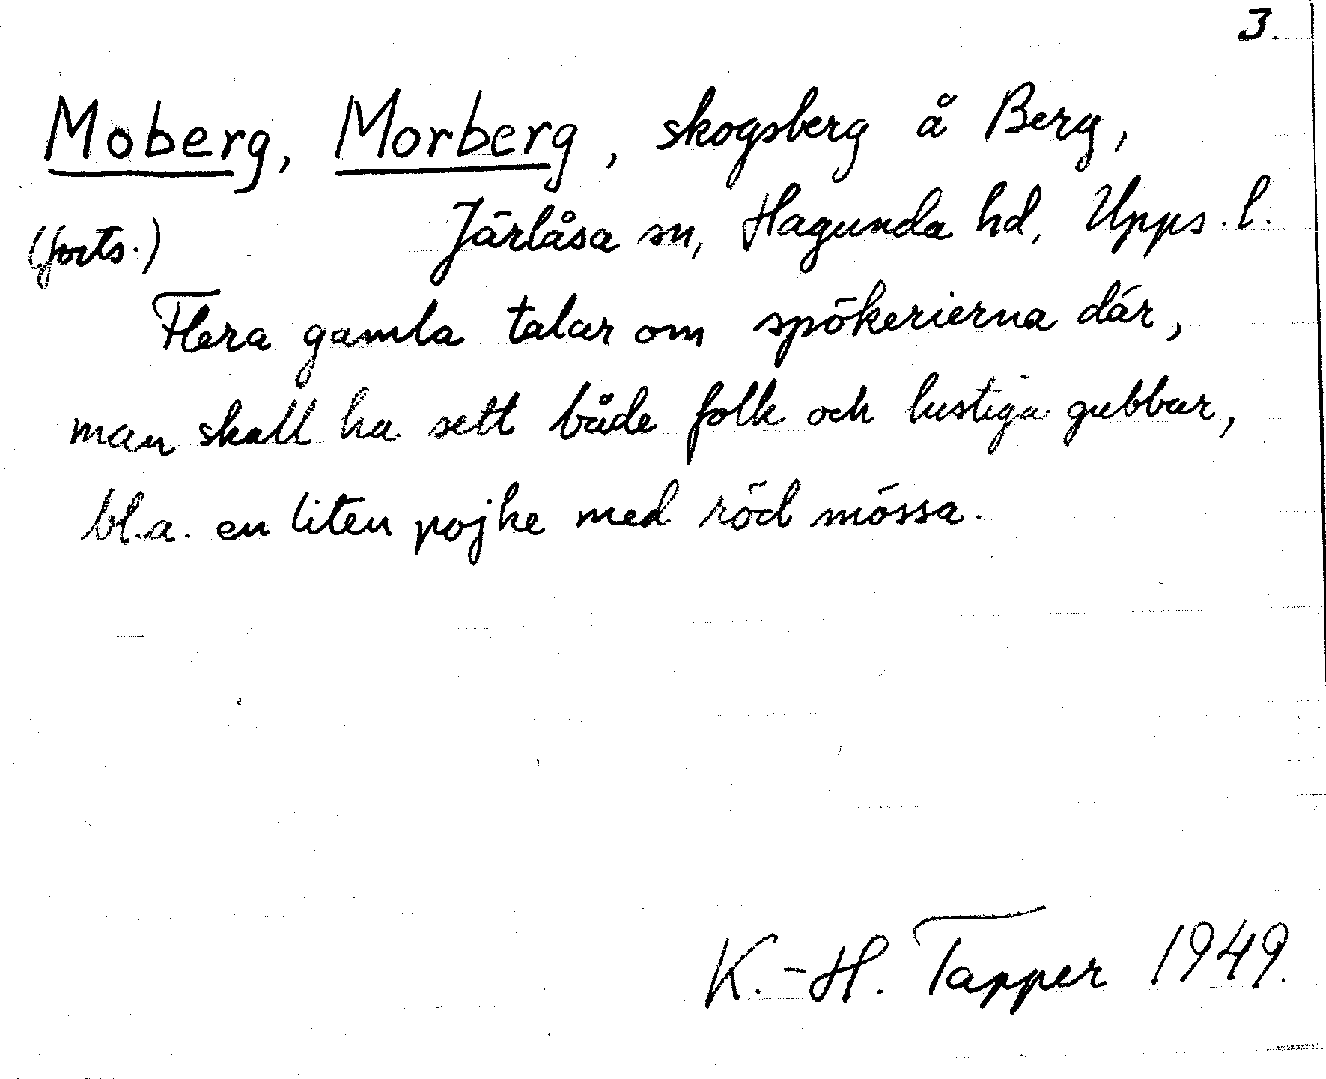 3.
Moberg, Morberg, skogsberg å Berg,
(forts.) Järlåsa sn, Hagunda hd, Upps. l.
Flera gamla talar om spökerierna där,
man skall ha sett både folk och lustiga gubbar,
bl.a. en liten pojke med röd mössa.
K.-H. Tapper 1949.